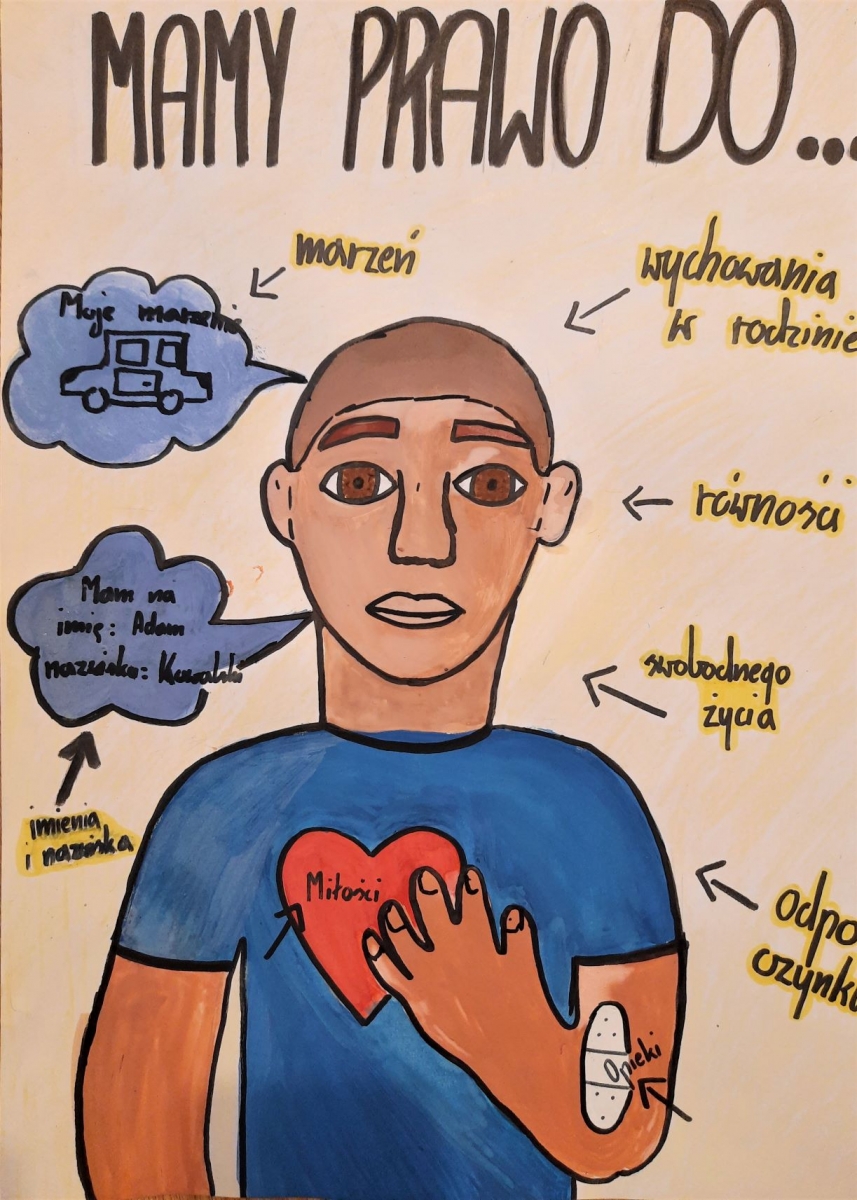 MAMY PRAWO DO...
marzeń
wychowania
w rodzinie
Moje marzenie
równości
Mam na
imię: Adam
nazwisko: Kowalski
swobodnego
życia
imienia
i nazwiska
Miłości
odpo
czynku
Opieki